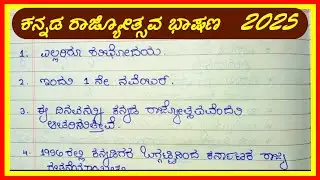 ಕನ್ನಡ ರಾಜ್ಯೋತ್ಸವ ಭಾಷಣ 2025
1. ಎಲ್ಲರಿಗೂ ಶುಭೋದಯ.
2. ಇಂದು 1 ನೇ ನವೆಂಬರ್.
3. ಈ ದಿನವನ್ನು ಕನ್ನಡ ರಾಜ್ಯೋತ್ಸವವೆಂದು
ಆಚರಿಸುತ್ತೇವೆ.
4. 1956 ರಲ್ಲಿ ಕನ್ನಡಿಗರ ಒಗ್ಗಟ್ಟಿನಿಂದ ಕರ್ನಾಟಕ ರಾಜ್ಯ